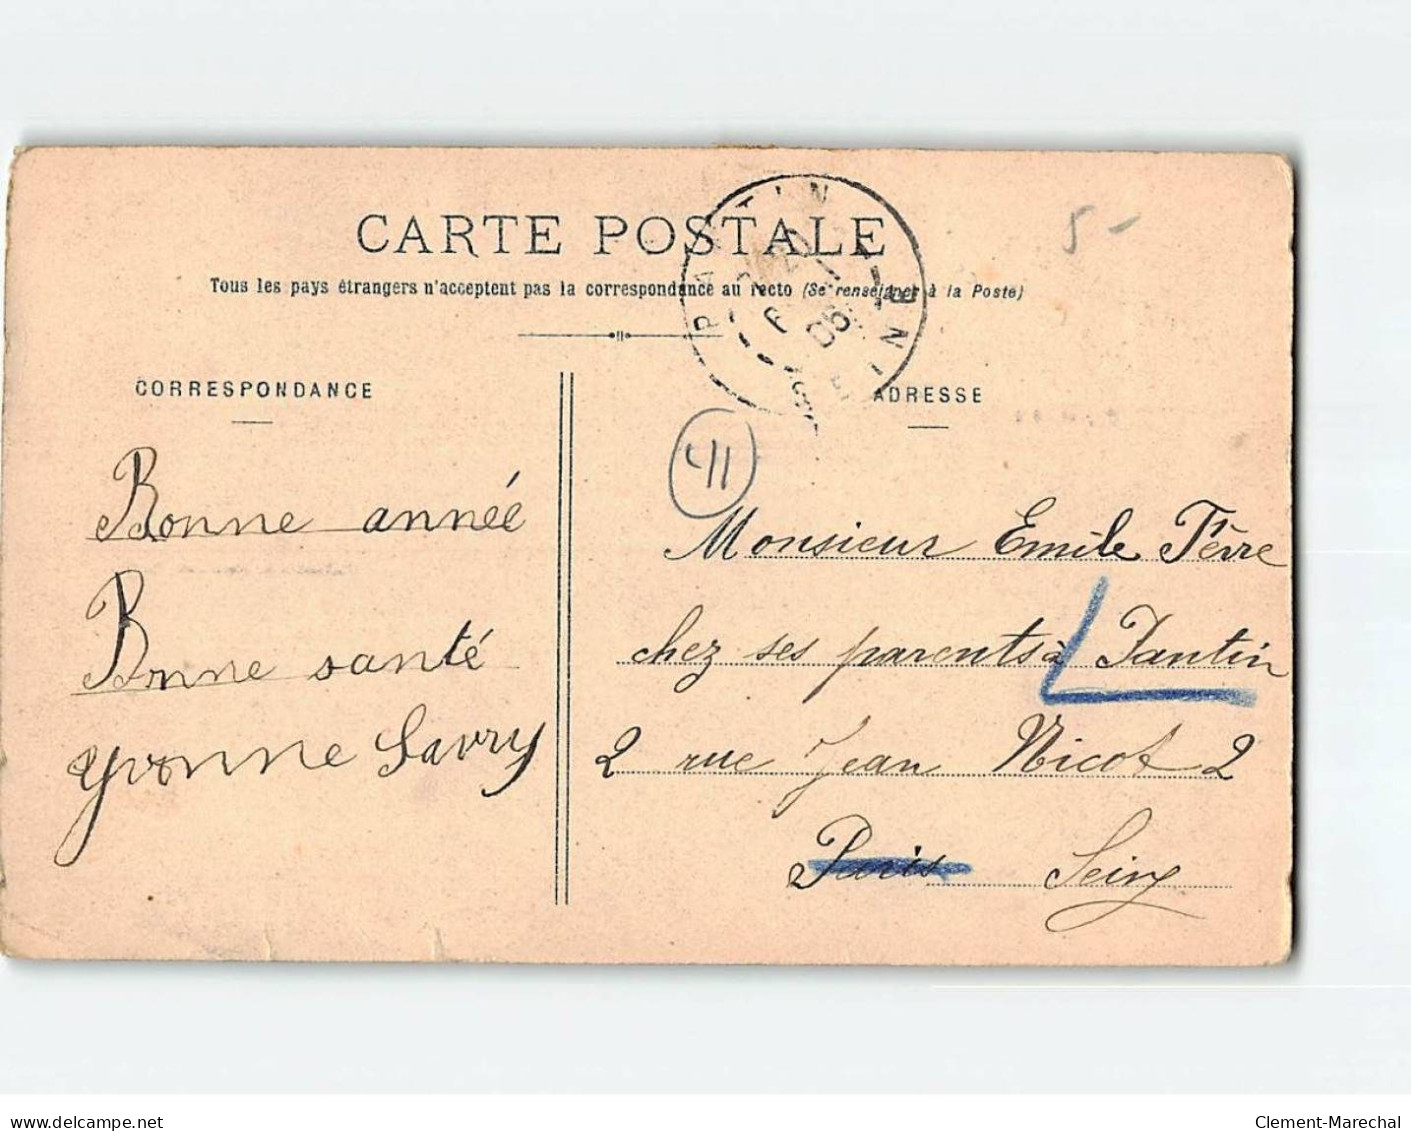 CARTE POSTALE
Tous les pays étrangers n'acceptent pas la correspondance au recto (Se renseigner à la Poste)
PANTIN
SEINE
06
5-
CORRESPONDANCE
ADRESSE
41
Bonne année
Bonne santé
Yvonne Savry
Monsieur Emile Fèvre
chez ses parents à Pantin
2 rue Jean Nicot 2
Paris Seine
www.delcampe.net
Clement-Marechal